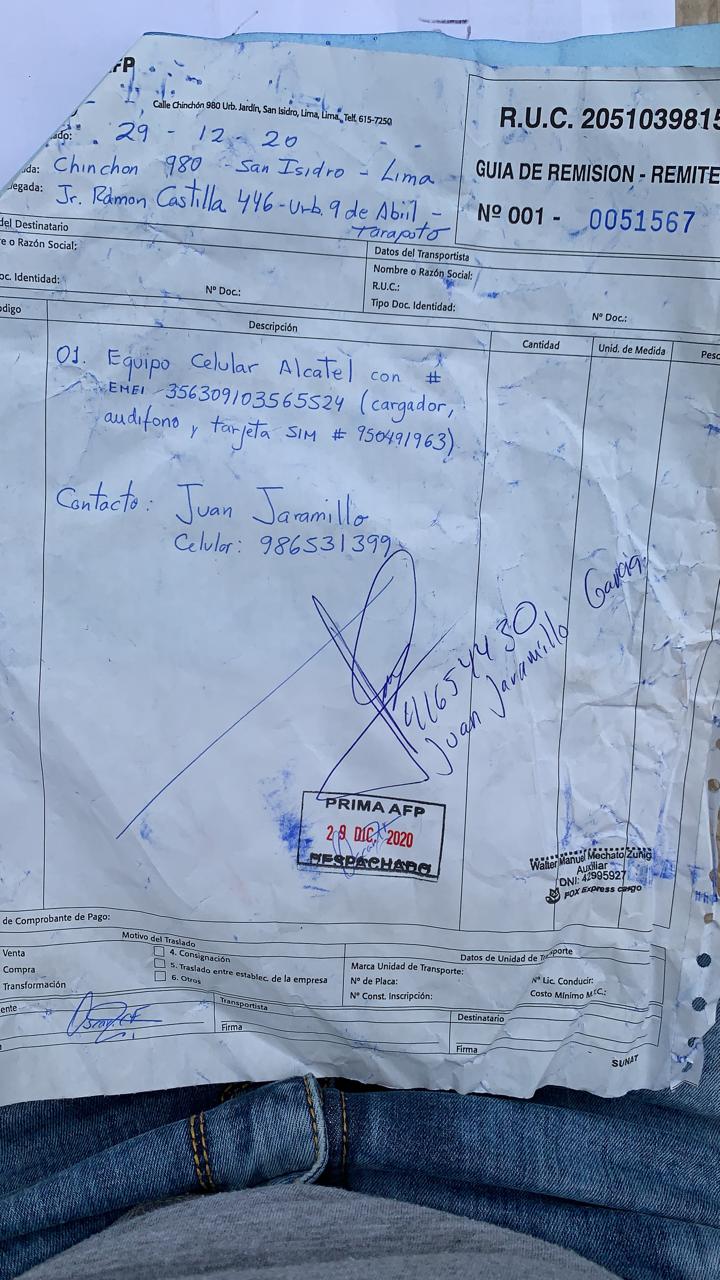 AFP
Calle Chinchón 980 Urb. Jardín, San Isidro, Lima, Lima, Telf. 615-7250
ado: 29 - 12 - 20
da: Chinchon 980 - San Isidro - Lima
legada: Jr. Ramon Castilla 446 - Urb. 9 de Abril -
Tarapoto
R.U.C. 2051039815
GUIA DE REMISION - REMITE
Nº 001 - 0051567
del Destinatario
e o Razón Social:
oc. Identidad:
Nº Doc.:
Datos del Transportista
Nombre o Razón Social:
R.U.C.:
Tipo Doc. Identidad:
Nº Doc.:
ódigo
Descripción
Cantidad
Unid. de Medida
Peso
01. Equipo Celular Alcatel con #
EMEI 356309103565524 (cargador,
audifono y tarjeta SIM # 950491963)
Contacto: Juan Jaramillo
Celular: 986531399
41654430
Juan Jaramillo Garcia
PRIMA AFP
29 DIC. 2020
DESPACHADO
Walter Manuel Mechato Zuñig
Auxiliar
DNI: 42995927
FOX Express cargo
de Comprobante de Pago:
Motivo del Traslado
Venta
Compra
Transformación
4. Consignación
5. Traslado entre establec. de la empresa
6. Otros
Datos de Unidad de Transporte
Marca Unidad de Transporte:
Nº de Placa:
Nº Const. Inscripción:
Nº Lic. Conducir:
Costo Mínimo M.C.:
ente
Transportista
Firma
Destinatario
Firma
SUNAT